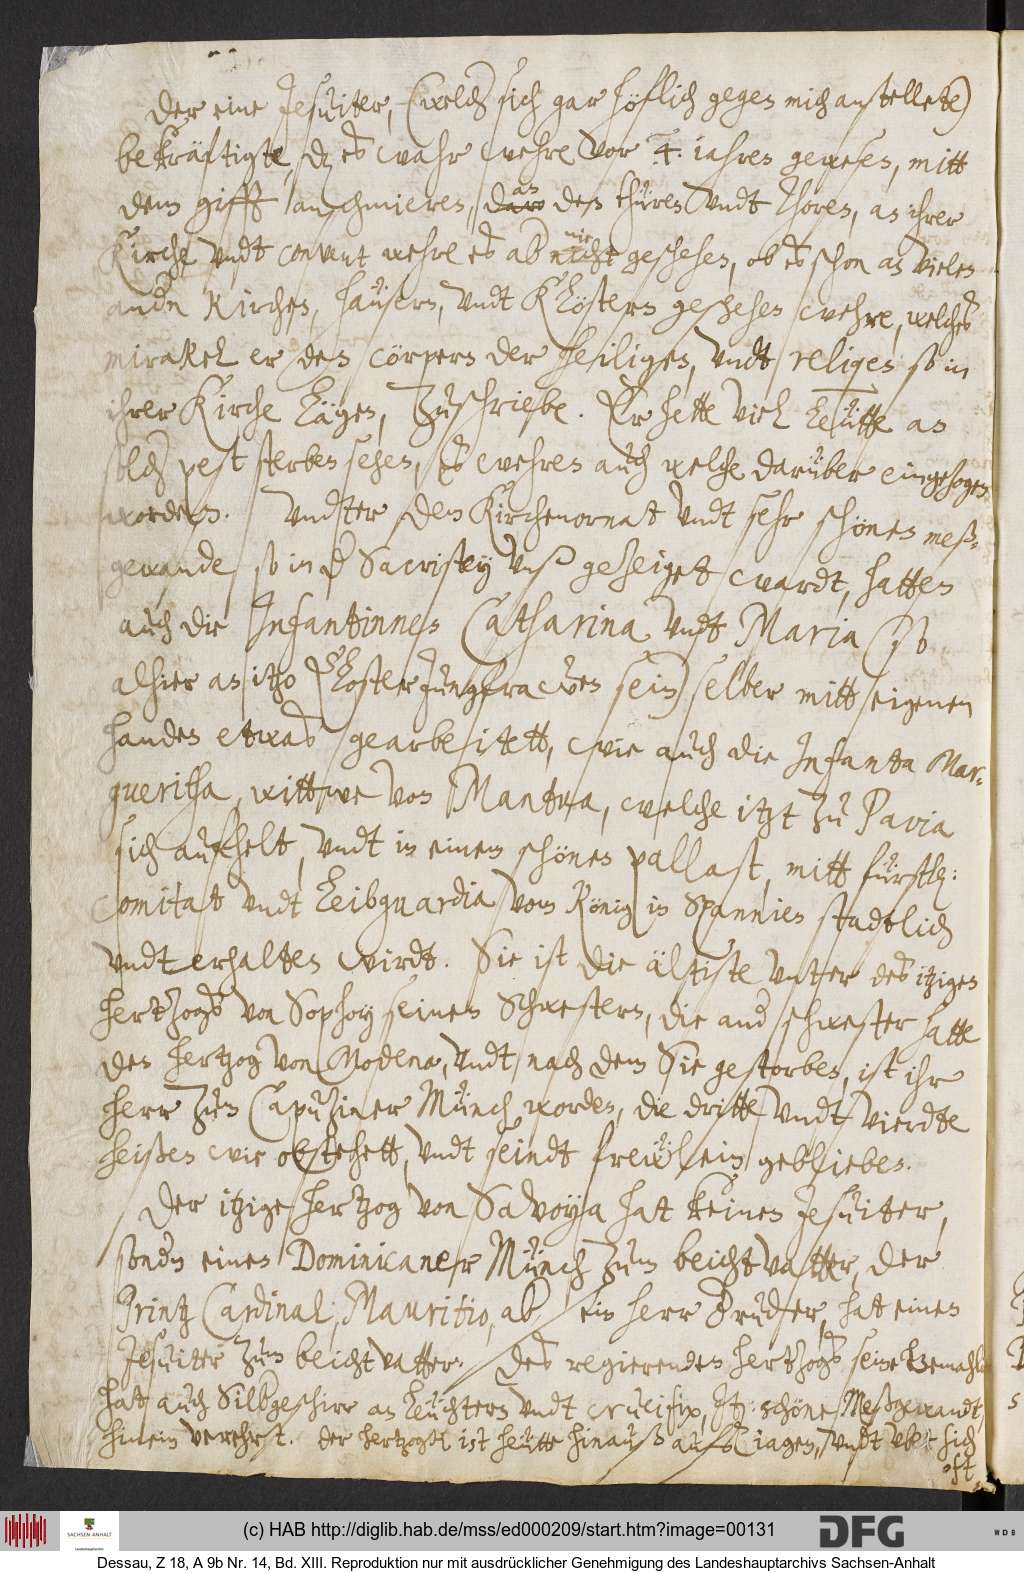 Der eine Jesuiter, (welch sich gar höflich gegen mich anstellete)
bekräftigte, dz es wahr wehre vor 4. iahren gewesen, mitt
dem gifft anschmieren, an den thüren vndt Thoren, an ihrer
Kirche, vndt convent wehre es ab nie geschehen, ob es schon an vielen
andn Kirchen, häusern, vndt Klöstern geschehen wehre, welches
mirakel er den cörpern der heiligen, vndt religen so in
ihrer Kirche lägen, zuschriebe. Er hette viel leutte an
solch pest sterben sehen, Es wehren auch welche darüber eingezogen
worden. Vndter dem Kirchenornat vndt sehr schönen meß-
gewande, so in d Sacristey vnß gezeiget wardt, hatten
auch die Infantinnen Catharina vndt Maria (so
alhier an itzo Klosterjungfrawen sein) selber mitt eigenen
handen etwas gearbeitett, wie auch die Infanta Mar-
gueritha, wittwe von Mantua, welche itzt zu Pavia
sich aufhelt, vndt in einem schönen pallast, mitt fürstl:
comitat vndt Leibguardia vom König in Spannien stadtlich
vndterhalten wirdt. Sie ist die ältiste vnter des itzigen
hertzogs von Sophoy seinen Schwestern, die and schwester hatte
den hertzog von Modena, vndt nach dem Sie gestorben, ist ihr
herr zum Capuziner Münch worden, die dritte vndt vierdte
heißen wie obstehett, vndt seindt freẅlein geblieben.
Der itzige hertzog von Savoya hat keinen Jesuiter,
sondn einen Dominicaner Münch zum beichtvatter, der
Printz Cardinal, Mauritio, ab, sein herr Bruder, hat einen
Jesuiter zum beichtvatter. Des regierenden hertzogs seine Gemahl
hat auch Silbgeschirr an leuchtern vndt crucifix, It: schöne Meßgewandt,
hinein verehrt. Der hertzog ist heutte hinauß aufs iagen, vndt vbet sich
oft
(c) HAB http://diglib.hab.de/mss/ed000209/start.htm?image=00131
SACHSEN-ANHALT
Landeshauptarchiv
DFG
WDB
Dessau, Z 18, A 9b Nr. 14, Bd. XIII. Reproduktion nur mit ausdrücklicher Genehmigung des Landeshauptarchivs Sachsen-Anhalt